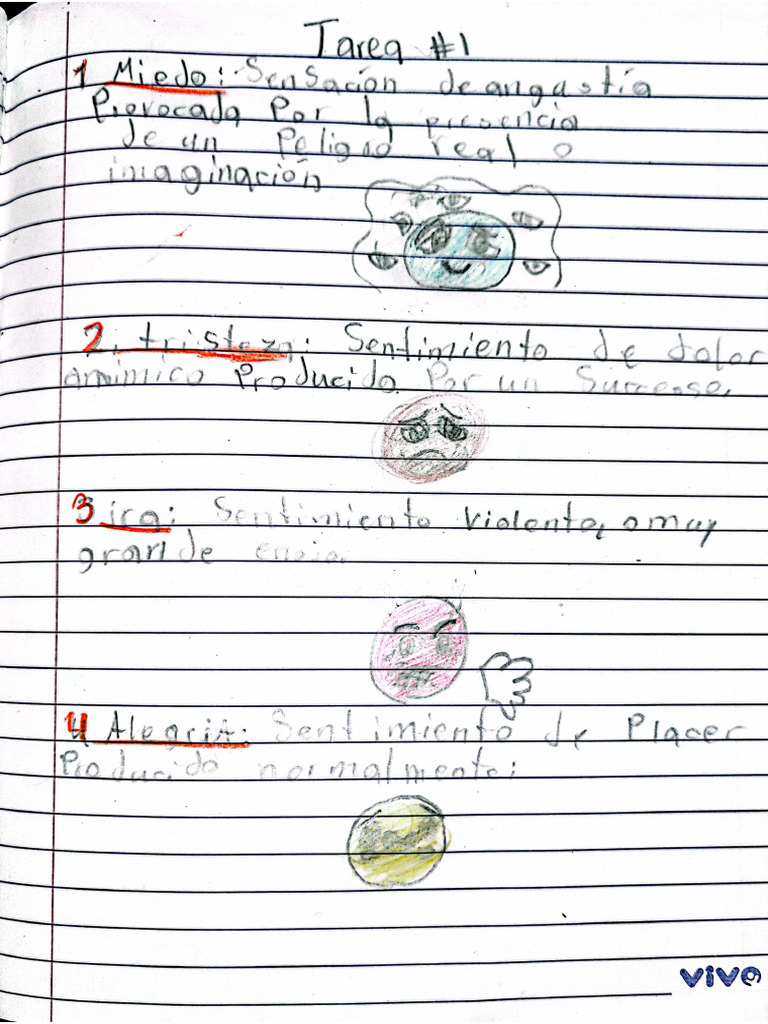 Tarea #1
1 Miedo: Sensación de angustía
Provocada Por la presencia
de un Peligno real o
imaginación
2. tristeza: Sentimiento de dolor
amimico Producido Por un Sucreso.
3 ira: Sentimiento violento, o muy
grande enojo.
4 Alegría: Sentimiento de Placer
Producido normalmente:
vivo